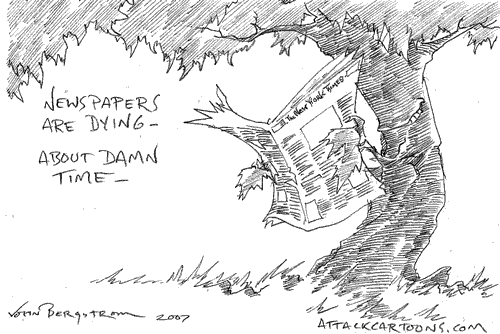 NEWSPAPERS
ARE DYING–
ABOUT DAMN
TIME–
The New York Times
John Bergstrom 2007
ATTACKCARTOONS.COM